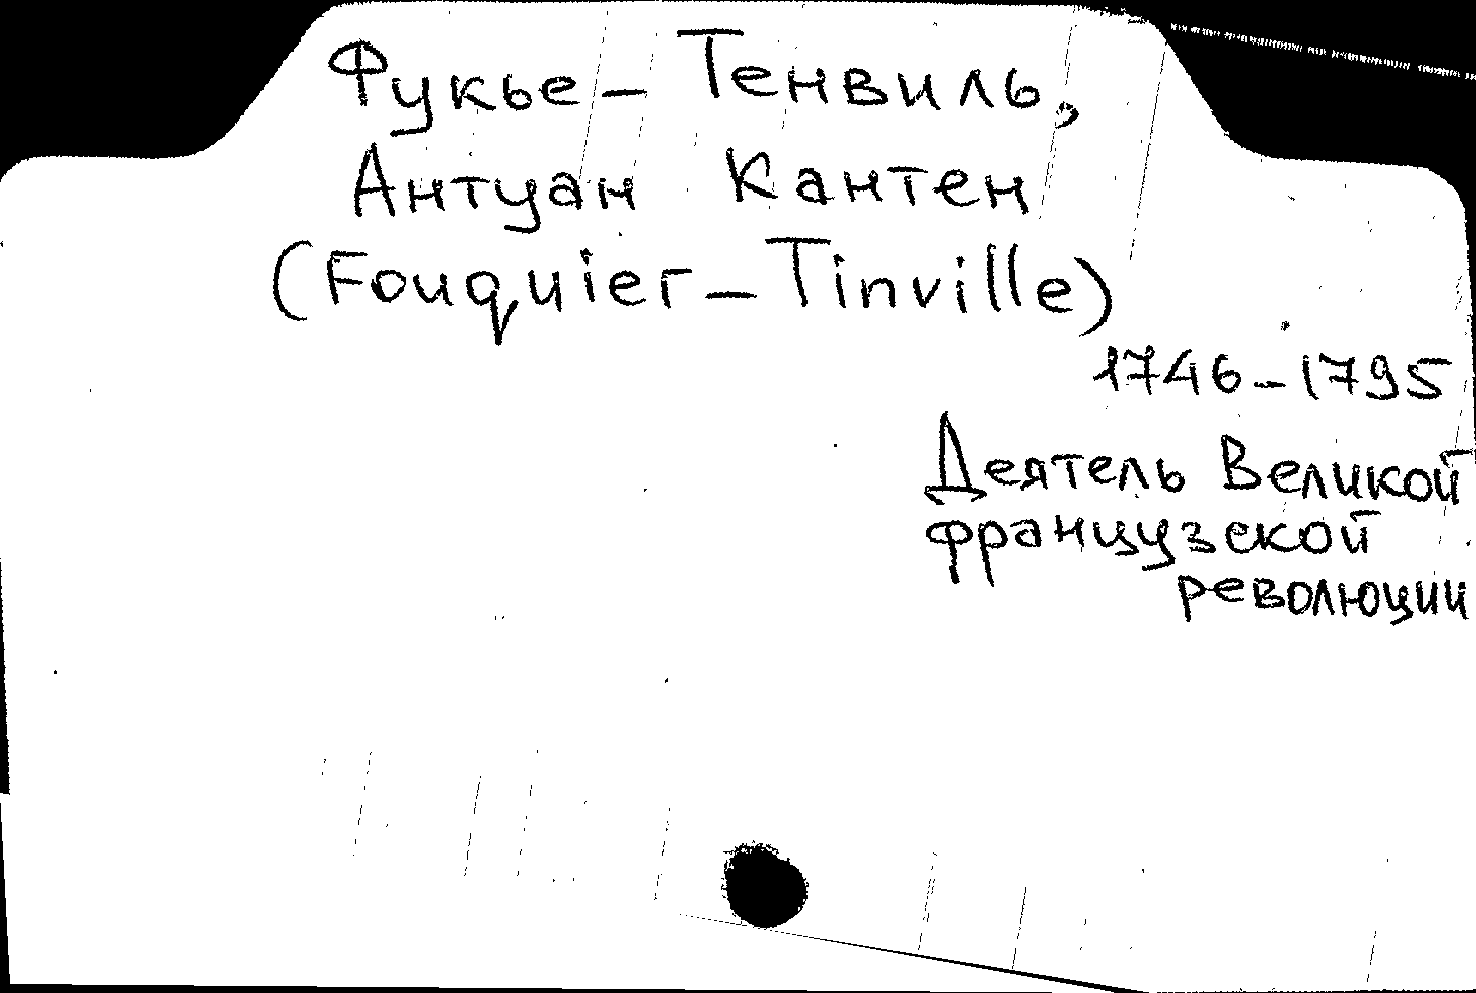 Фукье-Тенвиль,
Антуан Кантен
(Fouquier-Tinville)
1746-1795
Деятель Великой
французской
революции